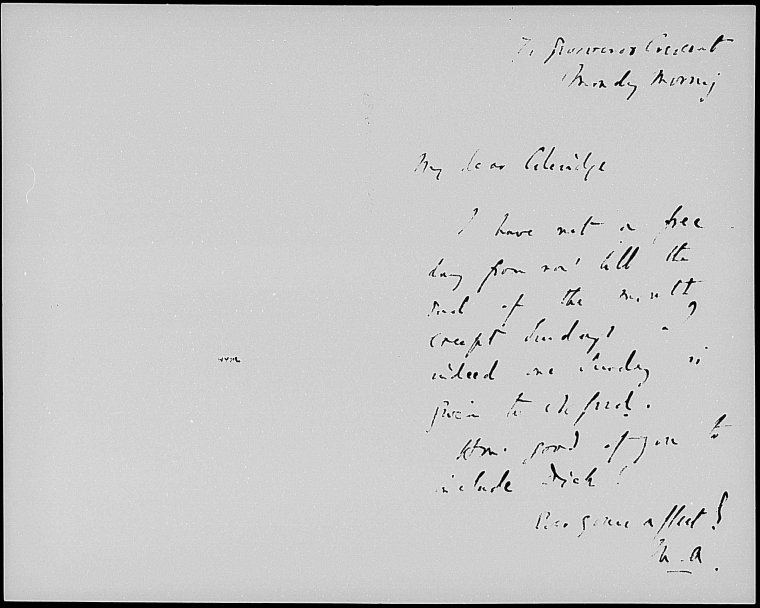 Grosvenor Crescent
Monday Morning
My dear Coleridge
I have not a free
day from now till the
end of the month
except Sundays
indeed one Sunday is
given to
good of you to
include Dick!
affect
M. A.